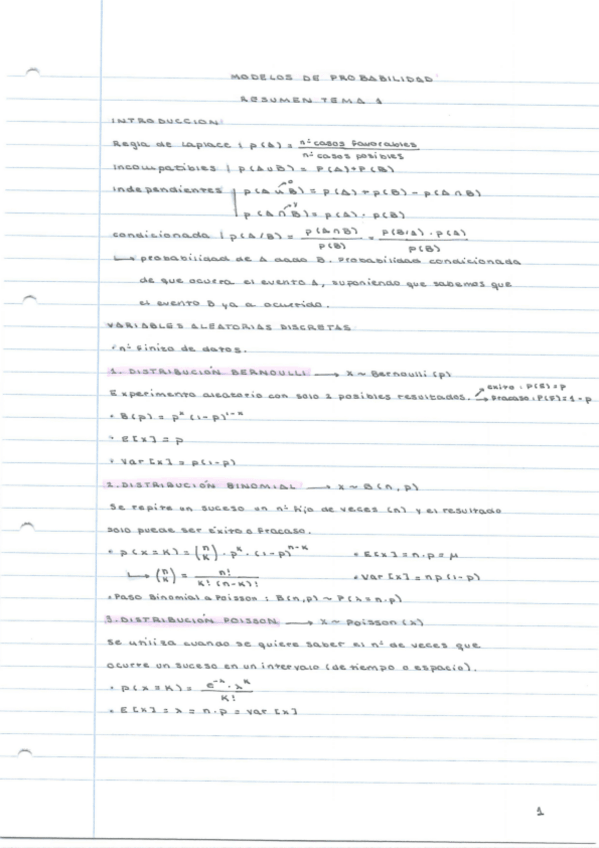 MODELOS DE PROBABILIDAD
RESUMEN TEMA 1
INTRODUCCION
Regla de Laplace | P(A) = nº casos favorables / nº casos posibles
incompatibles | P(A∪B) = P(A)+P(B)
independientes | P(A ∪ B) = P(A) + P(B) - P(A∩B)
P(A ∩ B) = P(A) · P(B)
condicionada | P(A/B) = P(A∩B) / P(B) = P(B/A) · P(A) / P(B)
↳ probabilidad de A dado B. Probabilidad condicionada
de que ocurra el evento A, suponiendo que sabemos que
el evento B ya a ocurrido.
VARIABLES ALEATORIAS DISCRETAS
· nº finito de datos.
1. DISTRIBUCIÓN BERNOULLI → X ~ Bernoulli (p)
Experimento aleatorio con solo 2 posibles resultados. → exito : P(E) = p
→ Fracaso : P(F) = 1 - p
· B(p) = pˣ (1-p)¹⁻ˣ
· E[x] = p
· Var [x] = p(1-p)
2. DISTRIBUCIÓN BINOMIAL → X ~ B(n, p)
Se repite un suceso un nº fijo de veces (n) y el resultado
solo puede ser Éxito o Fracaso.
· P(x = K) = (n K) · pᴷ · (1-p)ⁿ⁻ᴷ · E[x] = n·p = μ
↳ (n K) = n! / K! (n-K)! · Var [x] = np(1-p)
· Paso Binomial a Poisson : B(n,p) ~ P(λ = n·p)
3. DISTRIBUCIÓN POISSON → X ~ Poisson (λ)
Se utiliza cuando se quiere saber el nº de veces que
ocurre un suceso en un intervalo (de tiempo o espacio).
· P(x = K) = e^-λ · λ^K / K!
· E[x] = λ = n·p = Var [x]
1